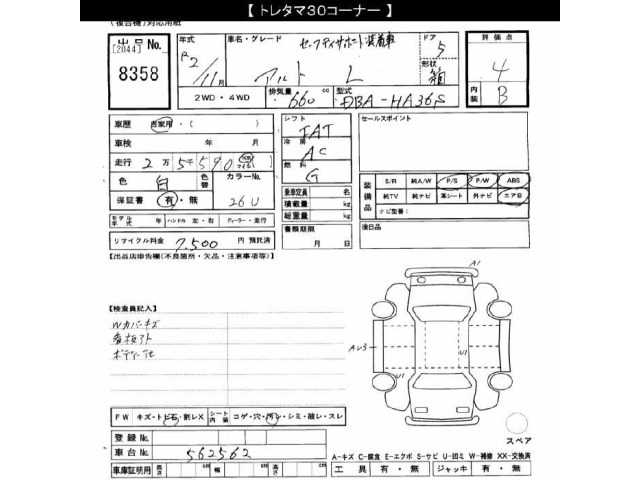 【 トレタマ３０コーナー 】
(複合機)対応用紙
出品 No.
[2044]
8358
年式
R2/11月
2WD・4WD
車名・グレード
セーフティサポート装着車
アルト L
ドア
5
形状
箱
排気量
660 cc
型式
DBA-HA36S
評価点
4
内装
B
車歴 自家用・( )
車検 年 月
走行 2万5千590
色 白 色替 カラーNo.
26U
保証書 有・無
モデル年式 年 ハンドル 左・右 ディーラー・並行
リサイクル料金 7,500 円 預託済
シフト
FAT
冷房
AC
燃料
G
乗車定員 名
積載量 kg
総重量 kg
書類期限
月 日
セールスポイント
装備品
S/R 純A/W P/S P/W ABS
純TV 純ナビ 革シート 外ナビ エアB
ナビ型番：
後日品
【出品店申告欄(不良箇所・欠品・注意事項等)】
【検査員記入】
Wカバーキズ
看板アト
A1
AU3
U1
U1
FW キズ・トビ石・割レX シート内装 コゲ・穴・汚レ・シミ・破レ・スレ
登録 No.
車台 No. 562562
車庫証明用 長さ cm 幅 cm 高さ cm
スペア
A-キズ C-腐食 E-エクボ S-サビ U-凹ミ W-補修 XX-交換済
工具 有・無 ジャッキ 有・無